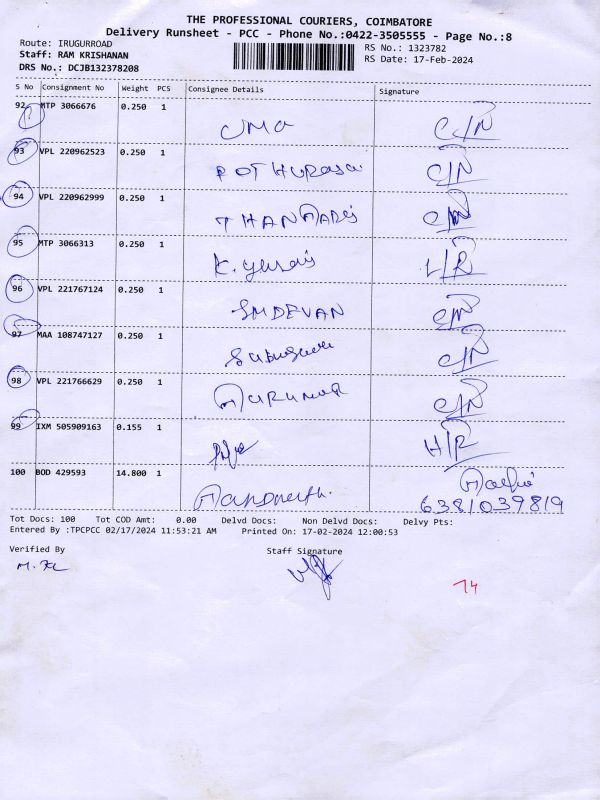 THE PROFESSIONAL COURIERS, COIMBATORE
Delivery Runsheet - PCC - Phone No.:0422-3505555 - Page No.:8
Route: IRUGURROAD RS No.: 1323782
Staff: RAM KRISHANAN RS Date: 17-Feb-2024
DRS No.: DCJB132378208
S No Consignment No Weight PCS Consignee Details Signature
92 MTP 3066676 0.250 1
UMA C/N
93 VPL 220962523 0.250 1
C/N
94 VPL 220962999 0.250 1
C/N
95 MTP 3066313 0.250 1
L/R
96 VPL 221767124 0.250 1
C/N
97 MAA 108747127 0.250 1
C/N
98 VPL 221766629 0.250 1
C/N
99 IXM 505909163 0.155 1
H/R
100 BOD 429593 14.800 1
6381039819
Tot Docs: 100 Tot COD Amt: 0.00 Delvd Docs: Non Delvd Docs: Delvy Pts:
Entered By :TPCPCC 02/17/2024 11:53:21 AM Printed On: 17-02-2024 12:00:53
Verified By Staff Signature
74